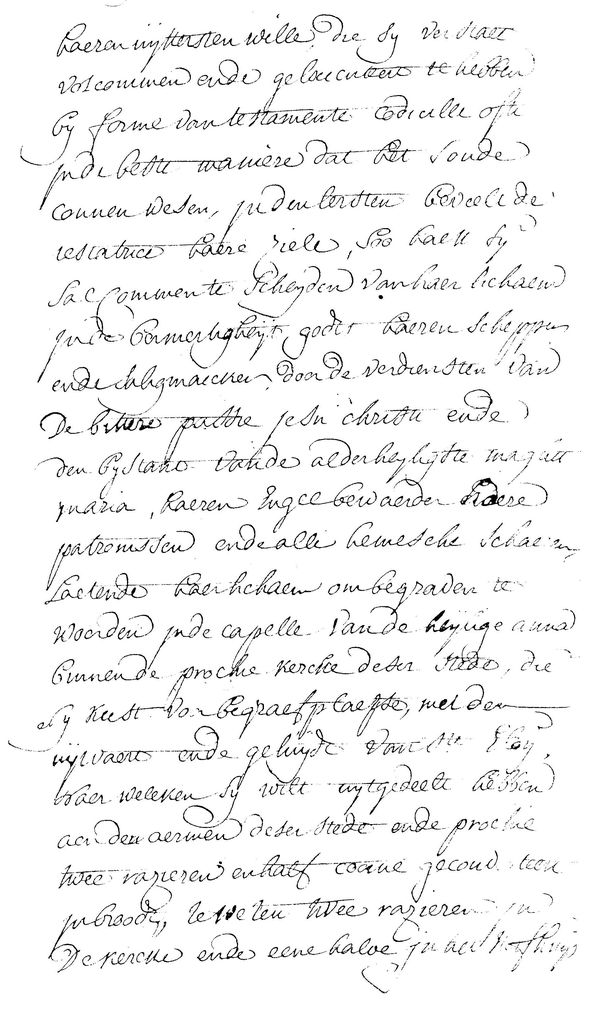 haeren uyttersten wille, die sy verstaet
volcommen ende gelaeuteert te hebben
by forme van testamente codicille ofte
inde beste maniere dat het soude
connen wesen, inden eersten beveelt de
testatrice haere ziele, soo haest sy
sal commen te scheyden van haer lichaem
inde bermertigheyt, godts haeren schepper
ende salighmaecker, door de verdiensten van
De bittere passie jesu christi ende
den bystant vande alderheyligste maget
maria, haeren Engel bewaerder haere
patronessen ende alle hemelsche schaeren
Laetende haer lichaem om begraven te
woorden inde capelle van de heylige anna
binnen de prochie kercke deser stede, die
sy kiest voor begraefplaetse, met den
uytvaert ende geluyde van ste Eloy,
naer welcken sy wilt uytgedeelt hebben
aen den aermen deser stede ende prochie
twee razieren en half coorne
in broode, te weten twee razieren in
De kercke ende eene halve in het